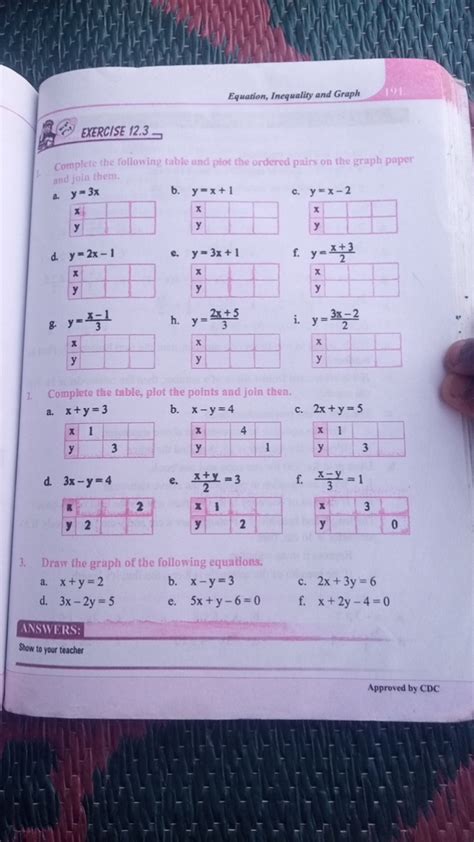 Equation, Inequality and Graph 191
EXERCISE 12.3
1. Complete the following table and plot the ordered pairs on the graph paper
and join them.
a. y = 3x b. y = x + 1 c. y = x – 2
x x x
y y y
d. y = 2x – 1 e. y = 3x + 1 f. y = (x + 3)/2
x x x
y y y
g. y = (x – 1)/3 h. y = (2x + 5)/3 i. y = (3x – 2)/2
x x x
y y y
2. Complete the table, plot the points and join then.
a. x + y = 3 b. x – y = 4 c. 2x + y = 5
x 1 x 4 x 1
y 3 y 1 y 3
d. 3x – y = 4 e. (x + y)/2 = 3 f. (x – y)/3 = 1
x 2 x 1 x 3
y 2 y 2 y 0
3. Draw the graph of the following equations.
a. x + y = 2 b. x – y = 3 c. 2x + 3y = 6
d. 3x – 2y = 5 e. 5x + y – 6 = 0 f. x + 2y – 4 = 0
ANSWERS:
Show to your teacher
Approved by CDC